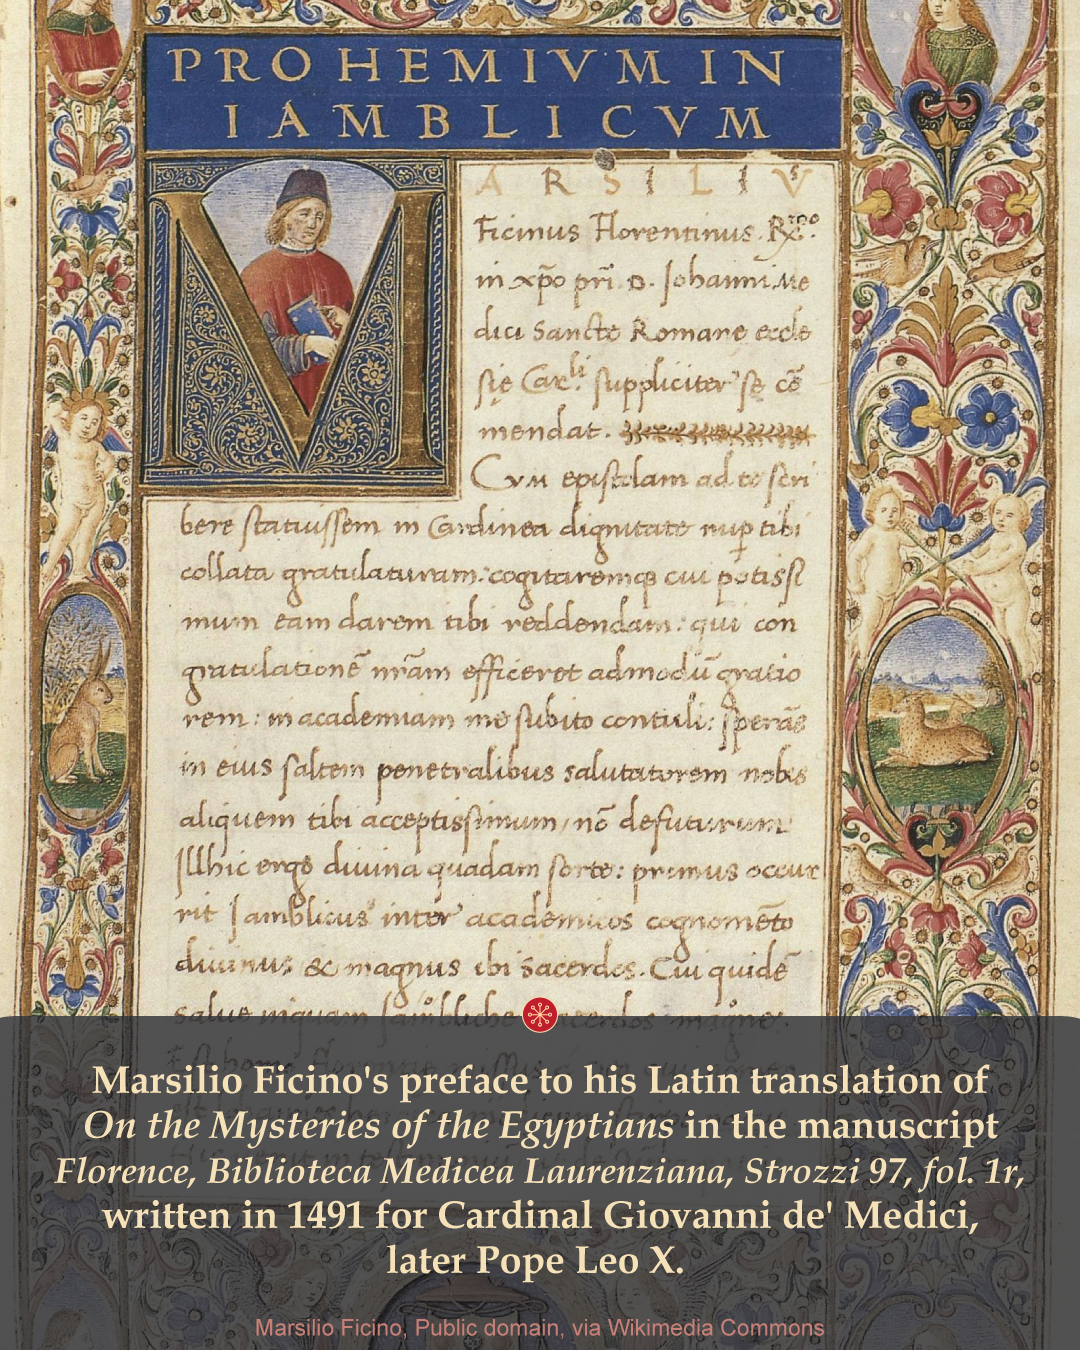 PROHEMIVM IN
IAMBLICVM
MARSILIV⁹
Ficinus Florentinus. R
in xp̄o pr̄i. D. Johanni Me
dici Sancte Romane eccle
się Car^li. suppliciter se cō
mendat.
CVM epistolam ad te scri
bere statuissem in Cardinea dignitate nup tibi
collata gratulaturam: cogitaremq; cui potissi
mum eam darem tibi reddendam: qui con
gratulationē nr̄am efficeret admodū gratio
rem: in academiam me subito contuli: sperās
in eius saltem penetralibus salutatorem nobis
aliquem tibi acceptissimum, nō defuturum
Illhic ergo diuina quadam sorte: primus occur
rit Jamblicus inter academicos cognomēto
diuinus & magnus ibi sacerdos. Cui quidē
salue inquam Jamblice sacerdos magne.
Marsilio Ficino's preface to his Latin translation of
On the Mysteries of the Egyptians in the manuscript
Florence, Biblioteca Medicea Laurenziana, Strozzi 97, fol. 1r,
written in 1491 for Cardinal Giovanni de' Medici,
later Pope Leo X.
Marsilio Ficino, Public domain, via Wikimedia Commons